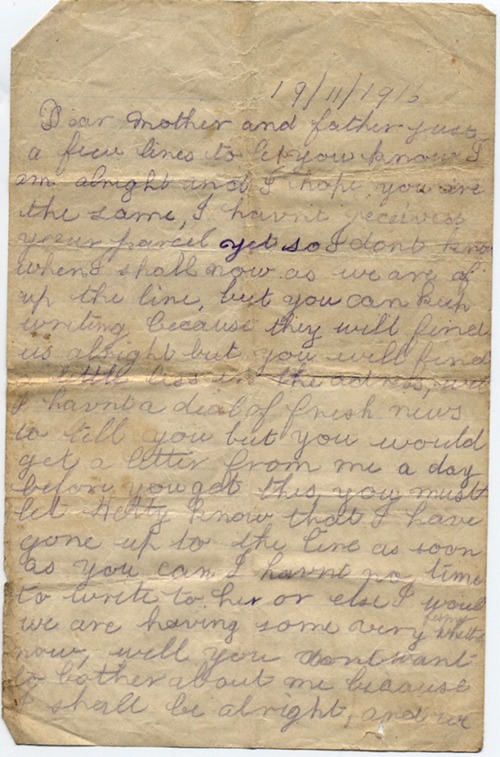 19/11/191
Dear Mother and father just
a few lines to let you know I
am alright and I hope you are
the same, I havnt received
your parcel yet so I dont know
when I shall now as we are of
up the line, but you can keep
writing because they will find
us alright but you will find
a little less in the adress, well
I havnt a deal of fresh news
to tell you but you would
get a letter from me a day
before you get this, you must
let Hetty know that I have
gone up to the line as soon
as you can I havnt no time
to write to her or else I would
we are having some very funy
now, well you dont want
to bother about me because
I shall be alright, and we